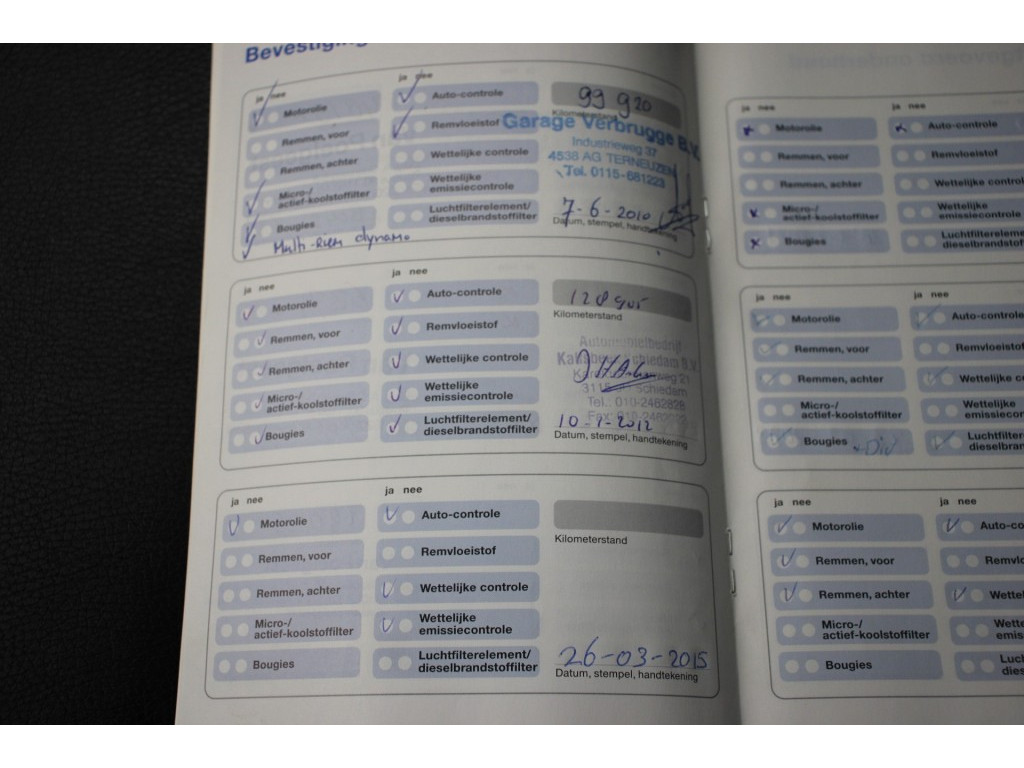 Bevestiging
ja nee
Motorolie
Remmen, voor
Remmen, achter
Micro-/
actief-koolstoffilter
Bougies
Multi-Riem dynamo
ja nee
Auto-controle
Remvloeistof
Wettelijke controle
Wettelijke
emissiecontrole
Luchtfilterelement/
dieselbrandstoffilter
99 920
Kilometerstand
Garage Verbrugge B.V.
Industrieweg 37
4538 AG TERNEUZEN
Tel. 0115-681223
7-6-2010
Datum, stempel, handtekening
ja nee
Motorolie
Remmen, voor
Remmen, achter
Micro-/
actief-koolstoffilter
Bougies
ja nee
Auto-controle
Remvloeistof
Wettelijke controle
Wettelijke
emissiecontrole
Luchtfilterelement/
dieselbrandstoffilter
Kilometerstand
Automobielbedrijf
Schiedam B.V.
Schiedam
Tel.: 010-2462828
10-1-2012
Datum, stempel, handtekening
ja nee
Motorolie
Remmen, voor
Remmen, achter
Micro-/
actief-koolstoffilter
Bougies
ja nee
Auto-controle
Remvloeistof
Wettelijke controle
Wettelijke
emissiecontrole
Luchtfilterelement/
dieselbrandstoffilter
Kilometerstand
26-03-2015
Datum, stempel, handtekening
ja nee
Motorolie
Remmen, voor
Remmen, achter
Micro-/
actief-koolstoffilter
Bougies
ja nee
Auto-controle
Remvloeistof
Wettelijke controle
Wettelijke
emissiecontrole
Luchtfilterelement/
dieselbrandstoffilter
ja nee
Motorolie
Remmen, voor
Remmen, achter
Micro-/
actief-koolstoffilter
Bougies
ja nee
Auto-controle
Remvloeistof
Wettelijke co
Wettelijke
emissiecon
Luchtfilter
dieselbran
ja nee
Motorolie
Remmen, voor
Remmen, achter
Micro-/
actief-koolstoffilter
Bougies
ja nee
Auto-co
Remvlo
Wettel
Wette
emiss
Luch
dies